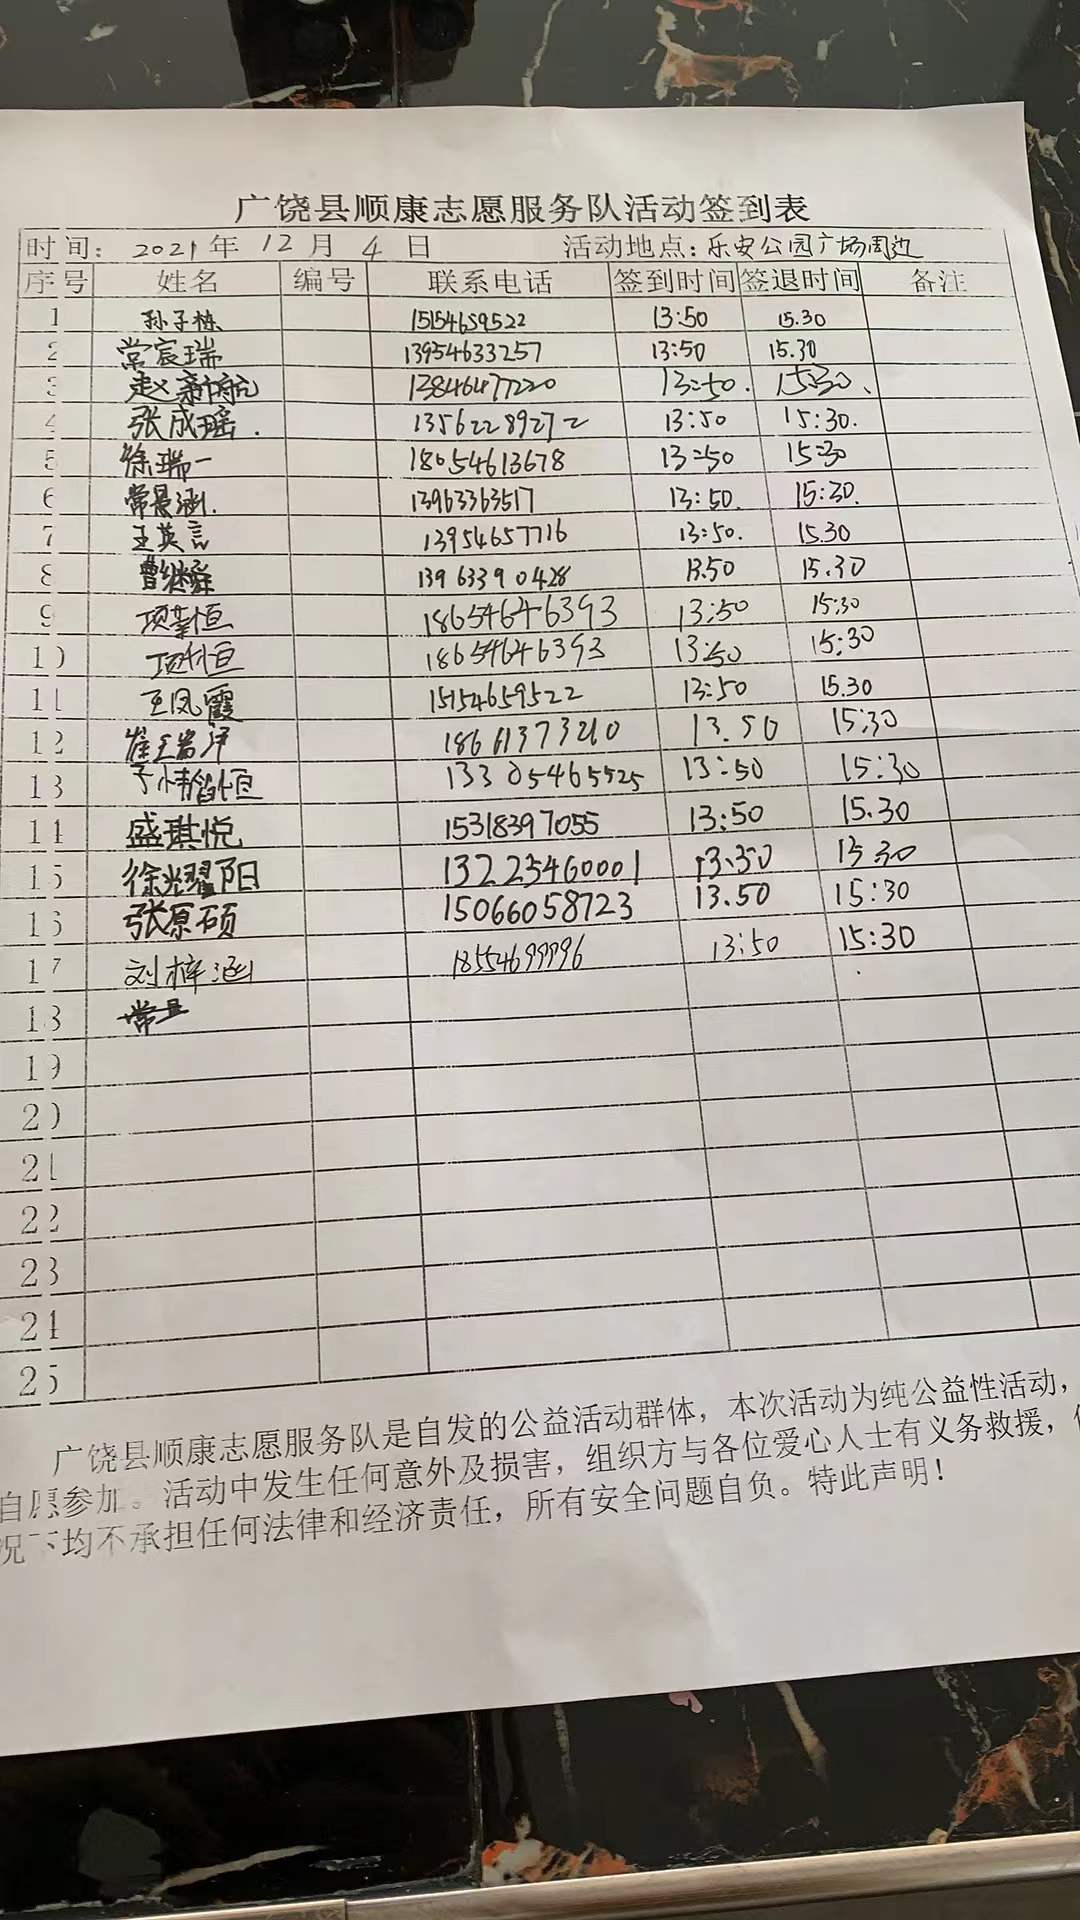 广饶县顺康志愿服务队活动签到表
时间: 2021年 12月 4日 活动地点:乐安公园广场周边
序号 姓名 编号 联系电话 签到时间 签退时间 备注
1 孙子栋 15154659522 13:50 15.30
2 常宸瑞 13954633257 13:50 15.30
3 赵新航 13846477220 13:50. 15:30.
4 张成瑶. 13562289272 13:50 15:30.
5 徐瑞一 18054613678 13:50 15:30
6 常景涵. 13963363517 13:50. 15:30.
7 王英言 13954657716 13:50. 15.30
8 曹继舜 13963390428 13.50 15.30
9 项 恒 18654646393 13:50 15:30
10 项 恒 18654646393 13:50 15:30
11 王凤霞 15154659522 13:50 15.30
12 崔 18661373210 13.50 15:30
13 13305465525 13:50 15:30
14 盛琪悦 15318397055 13:50 15.30
15 徐光耀阳 13225460001 13.50 15 30
16 张原硕 15066058723 13.50 15:30
17 刘梓涵 18554699996 13:50 15:30
18
19
20
21
22
23
24
25
广饶县顺康志愿服务队是自发的公益活动群体，本次活动为纯公益性活动，
自愿参加。活动中发生任何意外及损害，组织方与各位爱心人士有义务救援，
况下均不承担任何法律和经济责任，所有安全问题自负。特此声明！